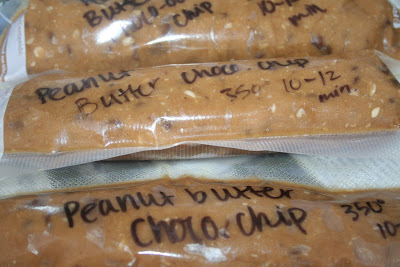 Peanut
Butter 10-
Choco. chip
min.
Peanut
Butter choco. chip
350° 10-12
min.
Peanut butter
choco. chip
350°
10-